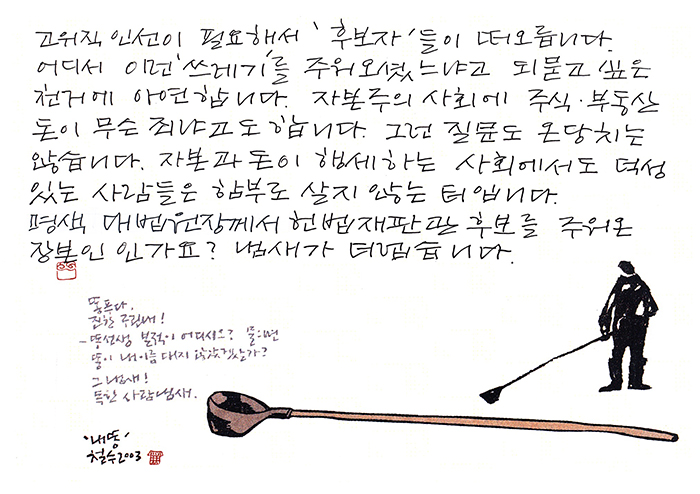 고위직 인선이 필요해서 '후보자'들이 떠오릅니다.
어디서 이런 '쓰레기'를 주워오셨느냐고 되묻고 싶은
천거에 아연합니다. 자본주의 사회에 주식·부동산
돈이 무슨 죄냐고도 합니다. 그런 질문도 온당치는
않습니다. 자본과 돈이 행세하는 사회에서도 덕성
있는 사람들은 함부로 살지 않는 터입니다.
명색 대법원장께서 헌법재판관 후보를 주워온
장본인 인가요? 냄새가 더럽습니다.
똥푸다.
진한 구린내!
-똥선생 본적이 어디세요? 물으면
똥이 내이름 대지 않았겠는가?
그 냄새!
독한 사람냄새.
'내 똥'
철수2003